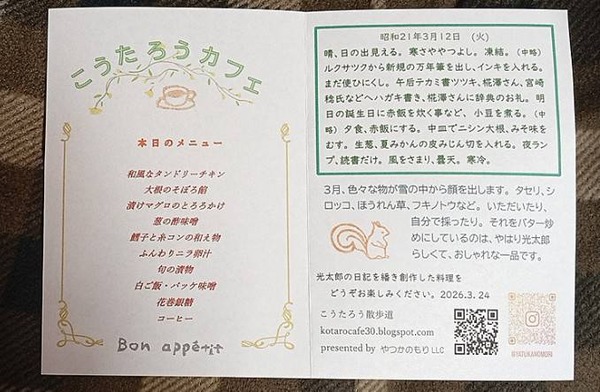 こうたろうカフェ
本日のメニュー
和風なタンドリーチキン
大根のそぼろ餡
漬けマグロのとろろかけ
葱の酢味噌
鱈子と糸コンの和え物
ふんわりニラ卵汁
旬の漬物
白ご飯・バッケ味噌
花巻銀糖
コーヒー
Bon appétit
昭和21年3月12日 (火)
晴、日の出見える。寒さややつよし。凍結。(中略)
ルクサツクから新規の万年筆を出し、インキを入れる。
まだ使ひにくし。午后テカミ書ツツキ、椛澤さん、宮崎
稔氏などへハガキ書き、椛澤さんに辞典のお礼。明
日の誕生日に赤飯を炊く事など、小豆を煮る。(中
略)夕食、赤飯にする。中皿でニシン大根、みそ味をむ
す。生葱、夏みかんの皮みじん切を入れる。夜ラン
プ、読書だけ。風をさまり、曇天。寒冷。
3月、色々な物が雪の中から顔を出します。タセリ、シ
ロッコ、ほうれん草、フキノトウなど。いただいたり、
自分で採ったり。それをバター炒
めにしているのは、やはり光太郎
らしくて、おしゃれな一品です。
光太郎の日記を繙き創作した料理を
どうぞお楽しみください。2026.3.24
こうたろう散歩道
kotarocafe30.blogspot.com
presented by やつかのもり LLC
@YATUKANOMORI